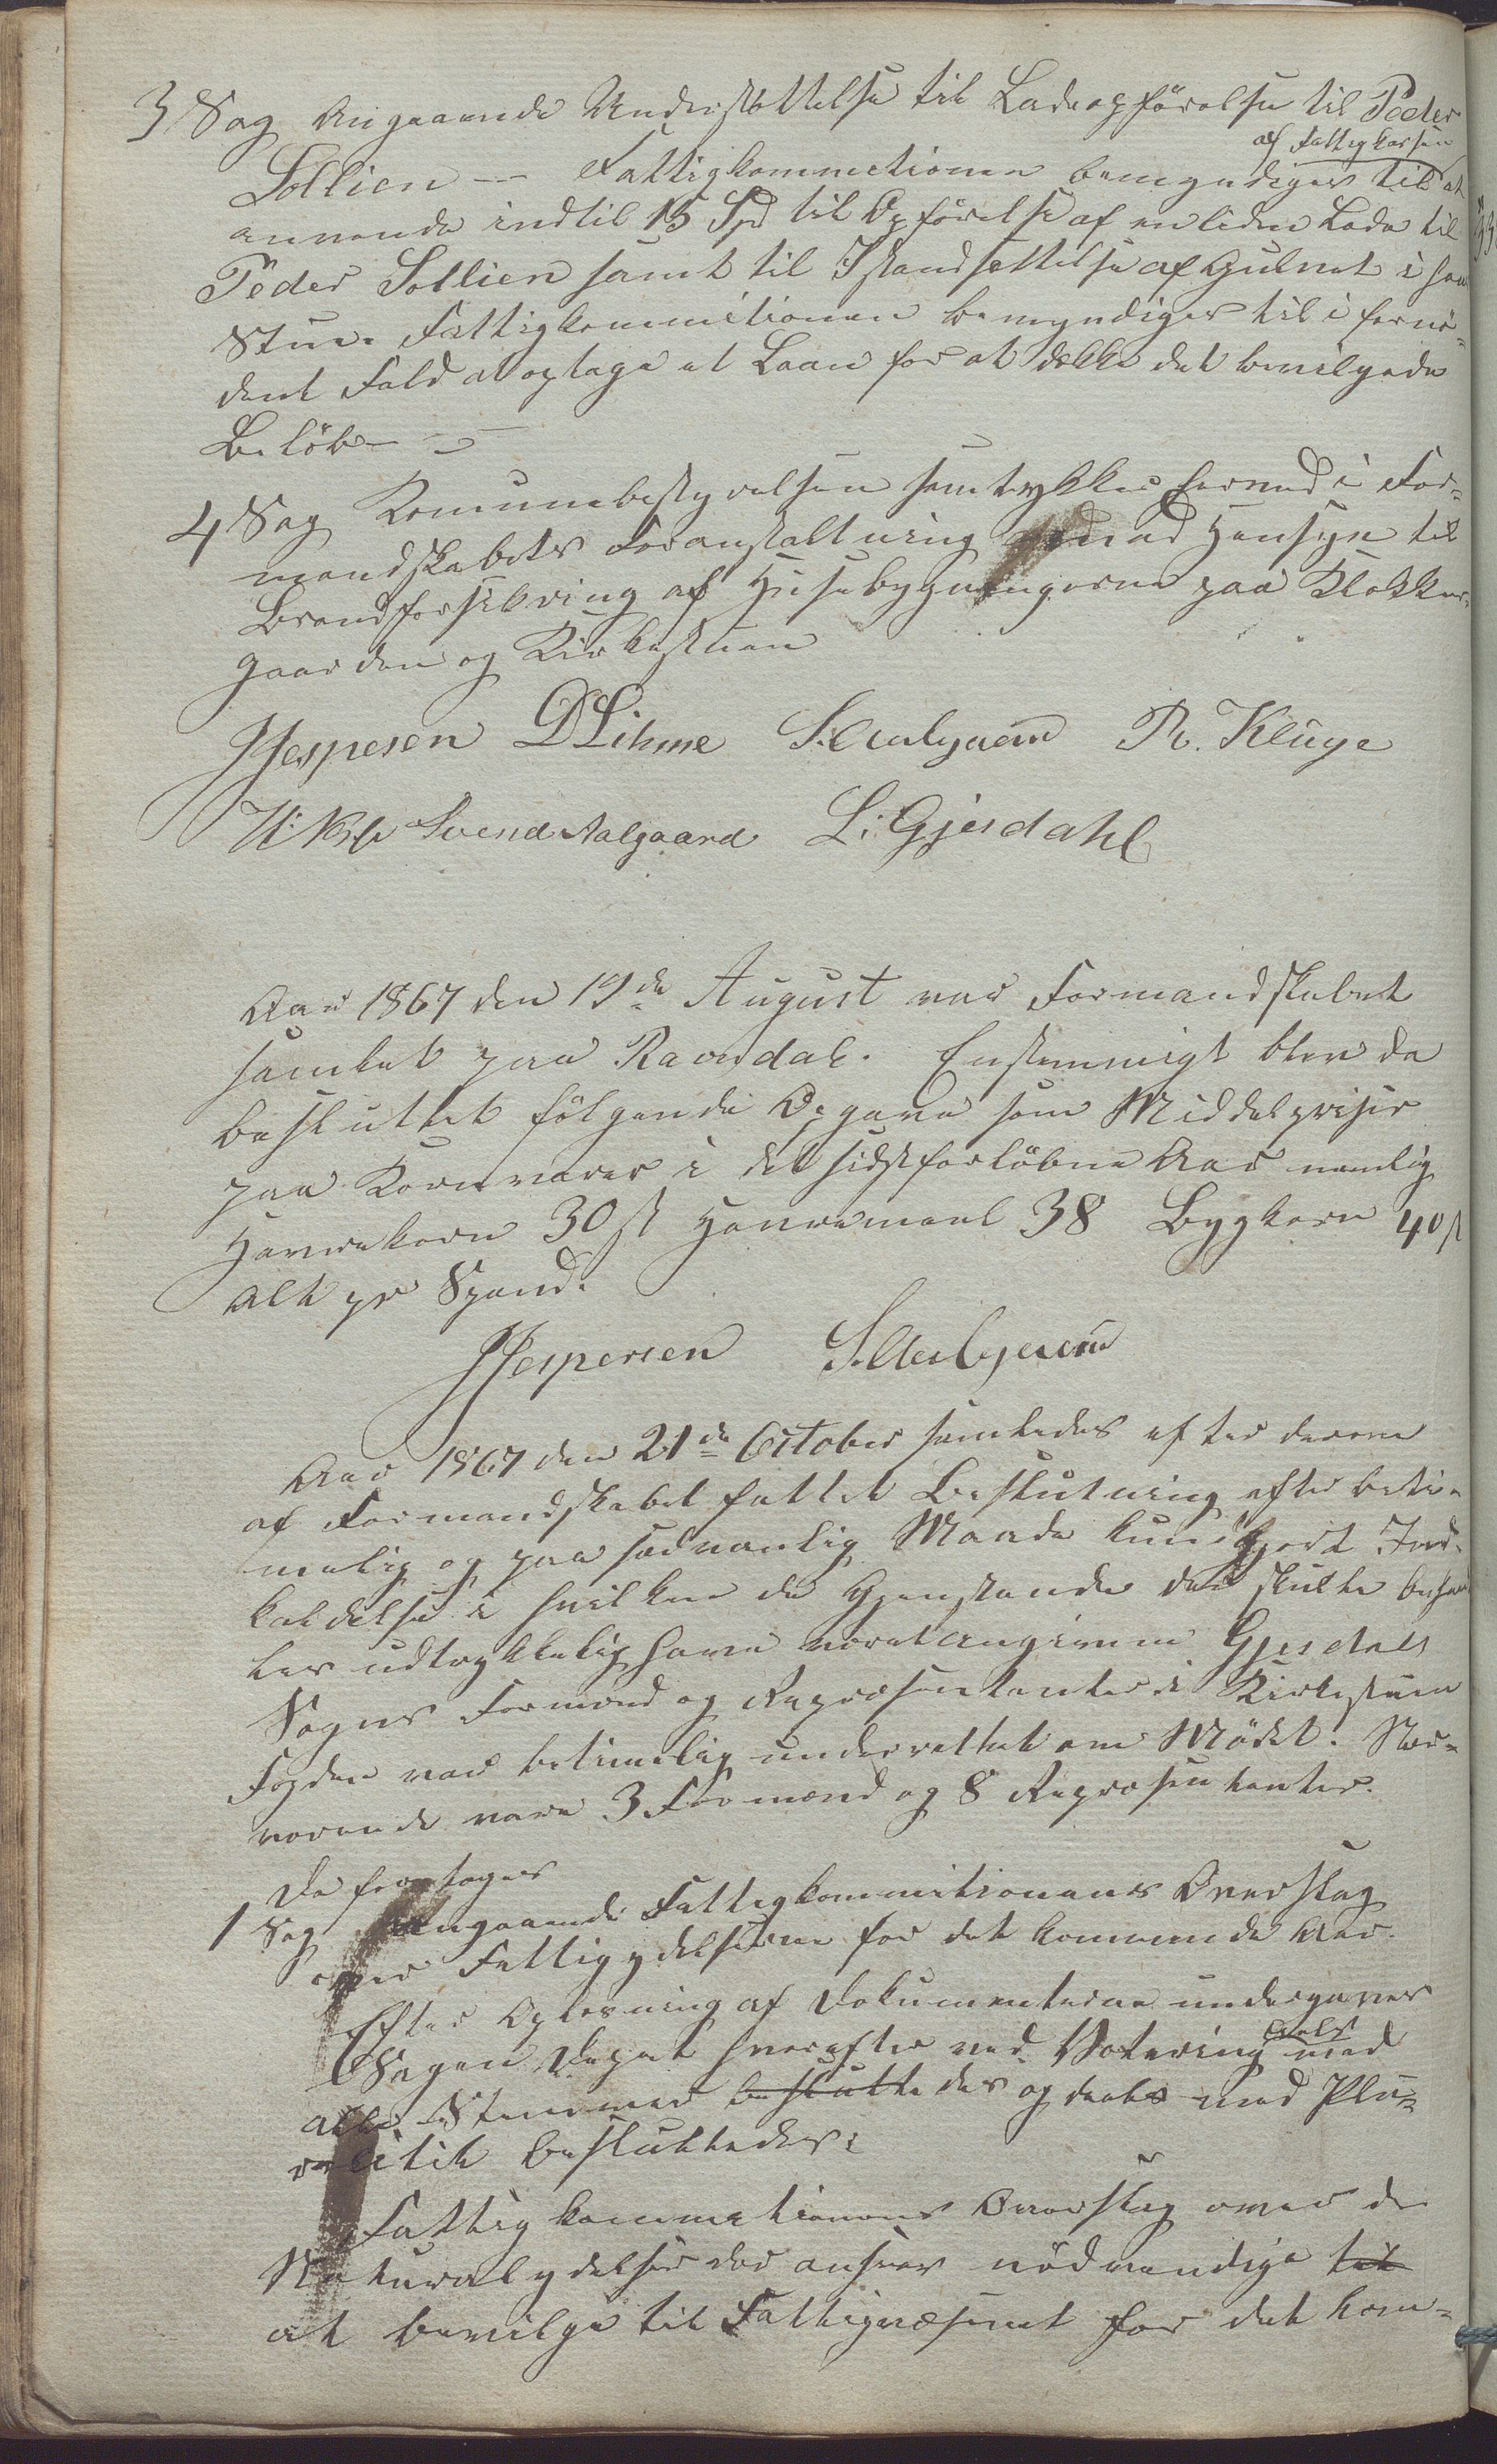 3 Sag Angaaende Understøttelse til Ladeopførelse til Peder
af Fattigkassen
Sollien — Fattigkommitionen bemyndiges til at
anvende indtil 15 Spd til Opførelse af en liden Lade til
Peder Sollien samt til Istandsettelse af Gulvet i hans
Stue. Fattigkommitionen bemyndiges til i fornö-
dent Fald at optage et Laan for at dekke det bevilgede
Belöb —
4 Sag Komunebestyrelsen samtykker herved i For-
mandskabets Foranstaltning med Hensyn til
Brandforsikring af Husebygningerne paa Klokker-
gaarden og Kirkestuen
JJespersen DLihme S. Aalgaard R. Kluge
Svend Aalgaard L. Gjesdahl
Aar 1867 den 19de August var Formandskabet
samlet paa Ravndal. Enstemmigt blev da
besluttet fölgende Opgave som Middelpriser
paa Kornvarer i det sidstforløbne Aar nemlig
Havrekorn 30 ß Havremeel 38 Bygkorn 40 ß
alt pr Spand.
JJespersen S. Aalgaard
Aar 1867 den 21de October samledes efter derom
af Formandskabet fattet Beslutning efter beti-
melig og paa sedvanlig Maade kundgjort Ind-
kaldelse i hvilken de Gjenstande der skulle behand
les udtrykkelig have veret angivne Gjesdals
Sogns Formænd og Repræsentanter i Kirkestuen
Fogden var betimelig underrettet om Mödet. Nær-
verende vare 3 Formænd og 8 Repræsentanter.
De foretoges
1 Sag Angaaende Fattigkommitionens Overslag
over Fattigydelserne for det kommende Aar.
Efter Oplesning af Dokumenterne undergaves
deels
Sagen Debat hvorefter ved Votering med
alle Stemmer besluttedes og deels med Plu-
ralitet besluttedes:
Fattigkommitionens Overslag over de
Naturalydelser der ansees nödvendige til
at bevilge til Fattigvæsenet for det kom-